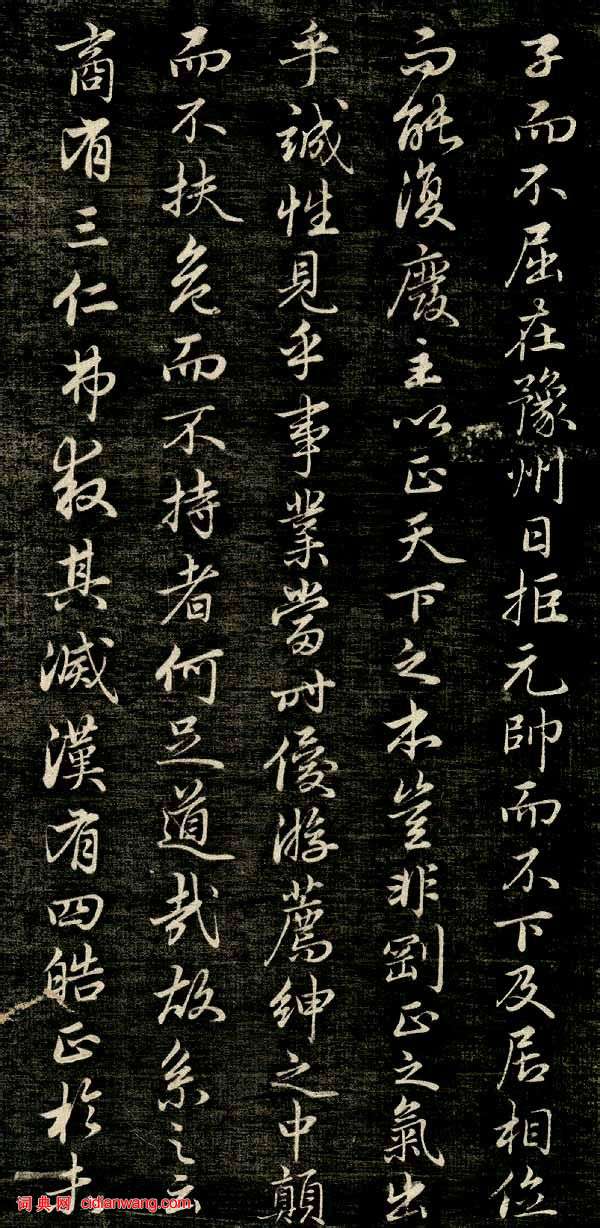 子而不屈在豫州日拒元帥而不下及居相位
而能復廢主以正天下之本豈非剛正之氣出
乎誠性見乎事業當時優游薦紳之中顛
而不扶危而不持者何足道哉故系之云
商有三仁弗救其滅漢有四皓正於未
词典网 cidianwang.com